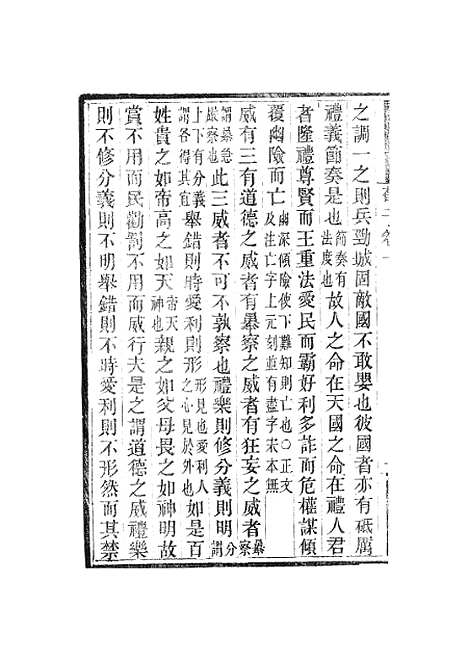 之調一之則兵勁城固敵國不敢嬰也彼國者亦有砥厲
禮義節奏是也節奏有法度也故人之命在天國之命在禮人君
者隆禮尊賢而王重法愛民而霸好利多詐而危權謀傾
覆幽險而亡幽深傾險使下難知則亡也○正文及注亡字上元刻並有盡字宋本無
威有三有道德之威者有暴察之威者有狂妄之威者暴察
謂暴急嚴察也此三威者不可不孰察也禮樂則修分義則明分謂
上下有分義也謂各得其宜舉錯則時愛利則形形見也愛利人之心見於外也如是百
姓貴之如帝高之如天帝天神也親之如父母畏之如神明故
賞不用而民勸罰不用而威行夫是之謂道德之威禮樂
則不修分義則不明舉錯則不時愛利則不形然而其禁